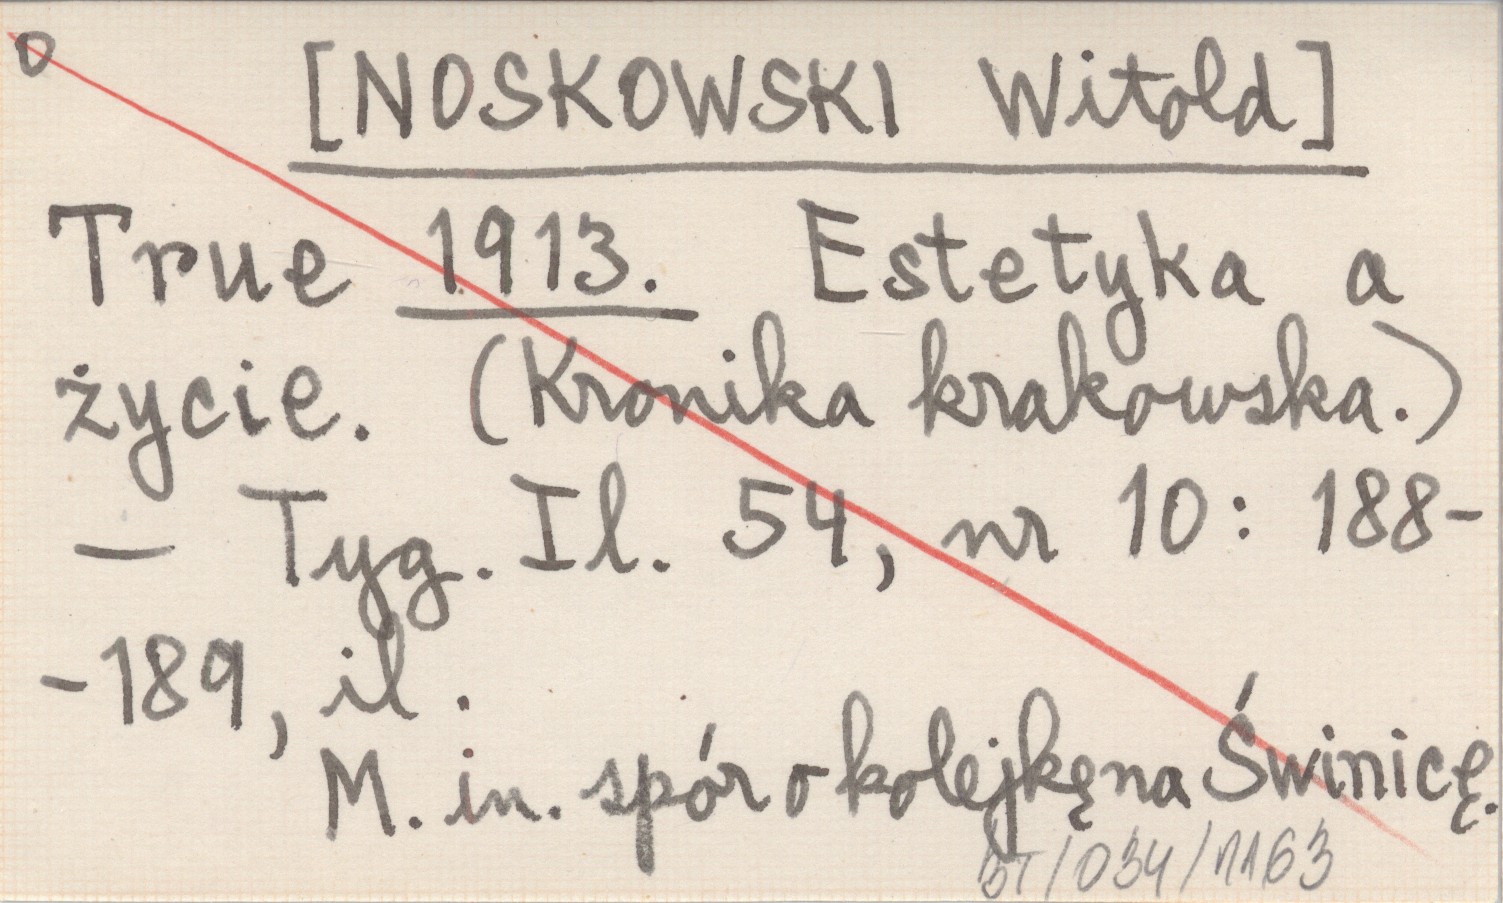 o
[NOSKOWSKI Witold]
True 1913. Estetyka a
życie. (Kronika krakowska.)
— Tyg. Il. 54, nr 10: 188-
-189, il.
M. in. spór o kolejkę na Świnicę.
BT/034/1163